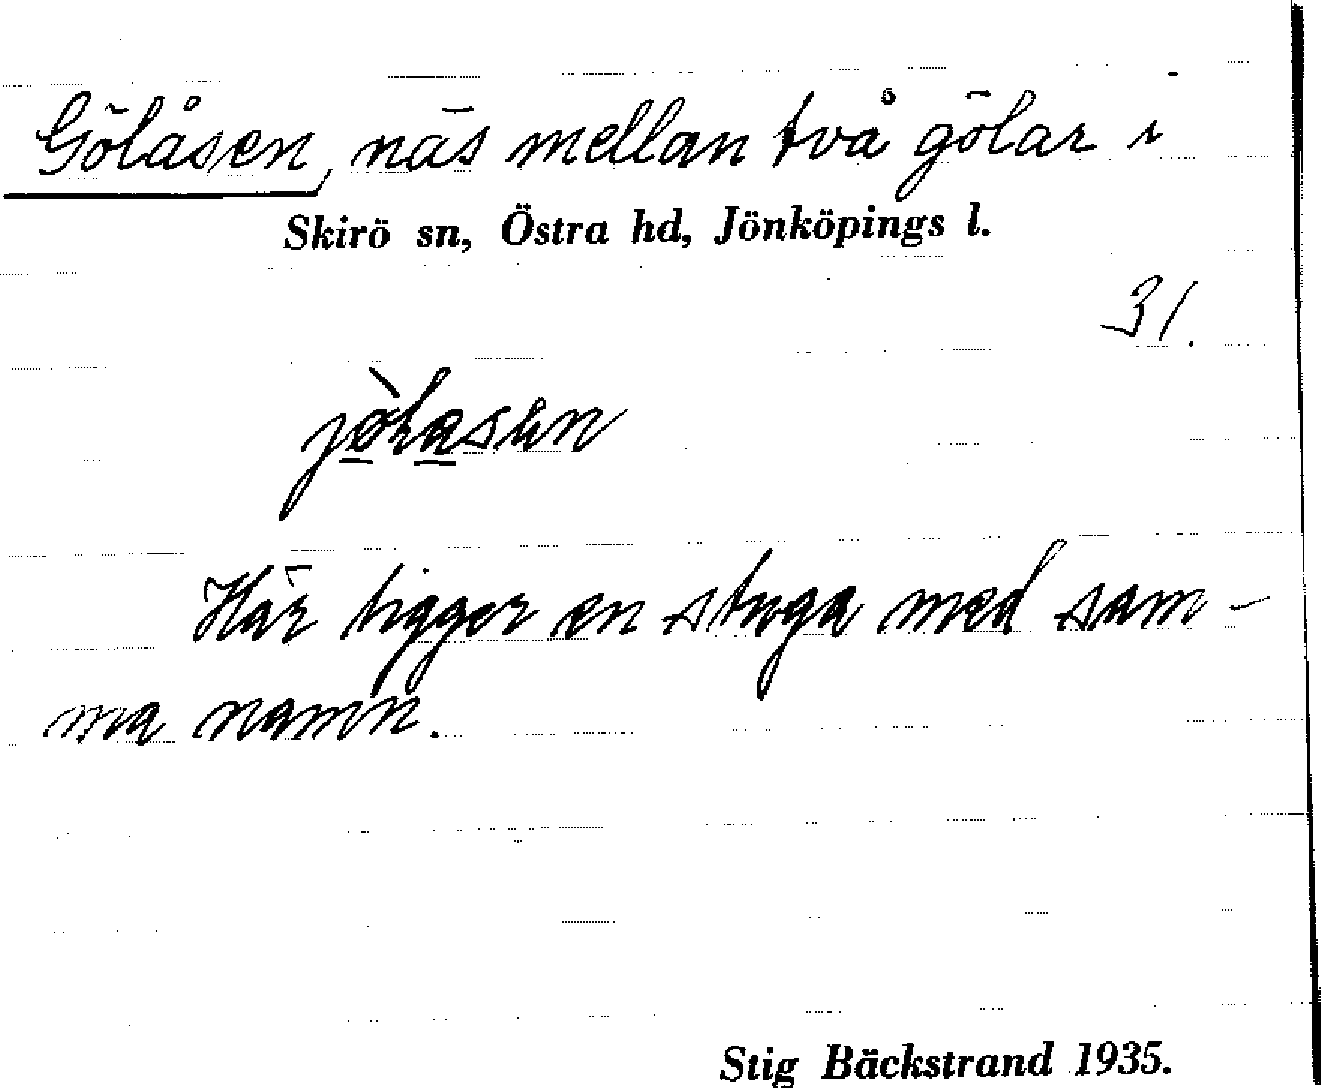 Gölåsen, näs mellan två gölar i
Skirö sn, Östra hd, Jönköpings l.
31.
Här ligger en stuga med sam-
ma namn.
Stig Bäckstrand 1935.